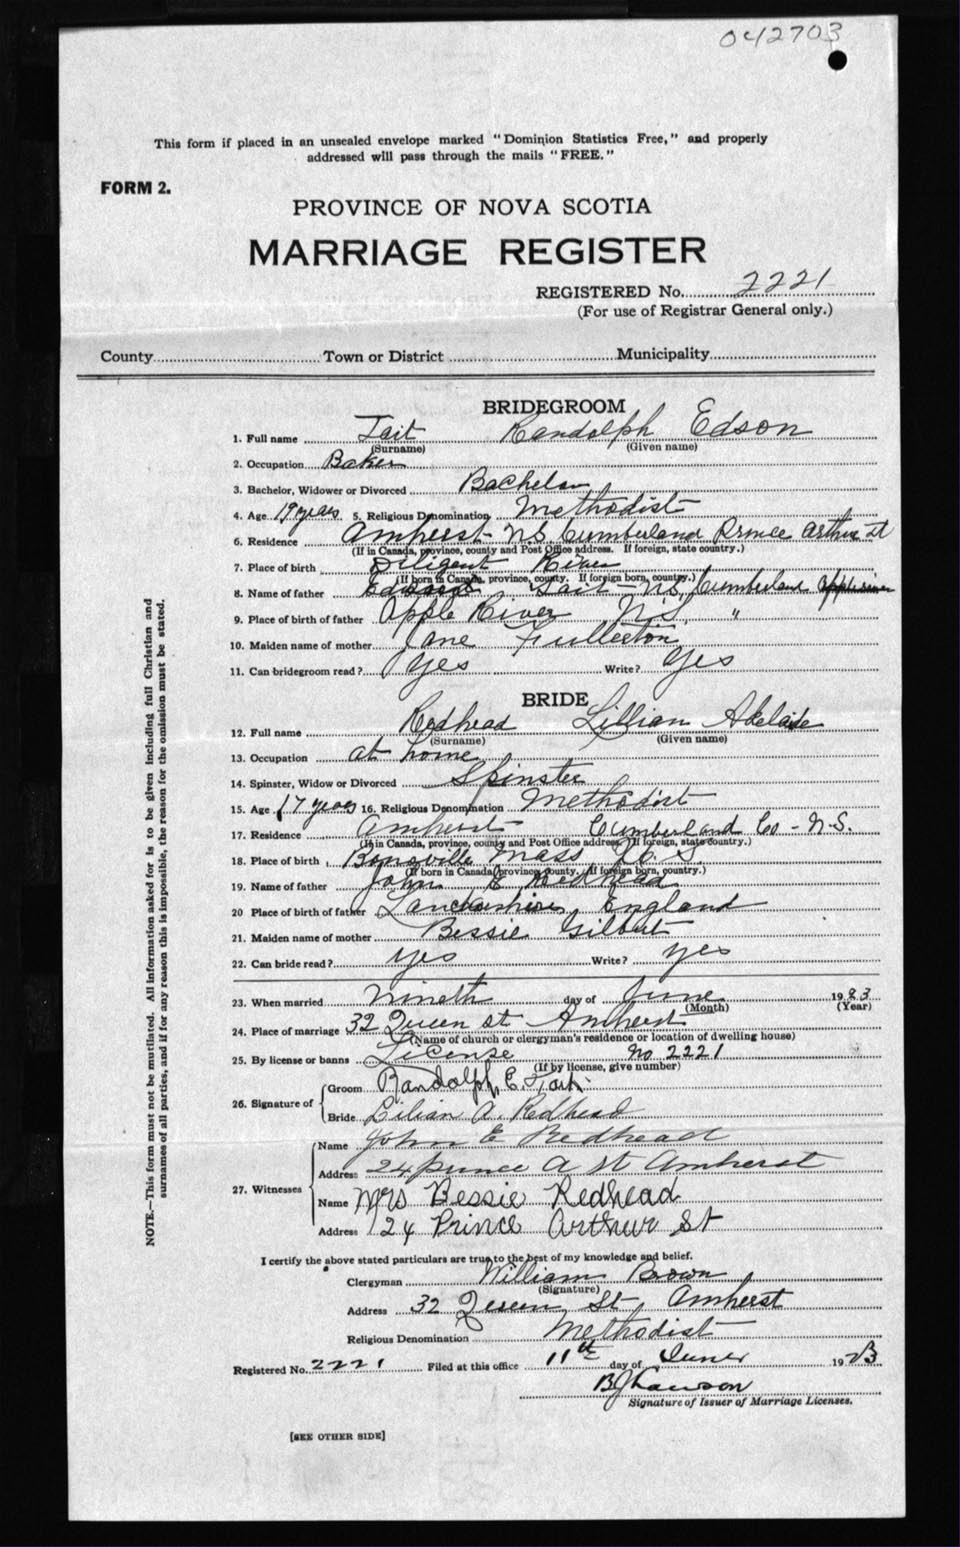 042703
This form if placed in an unsealed envelope marked "Dominion Statistics Free," and properly
addressed will pass through the mails "FREE."
FORM 2.
PROVINCE OF NOVA SCOTIA
MARRIAGE REGISTER
REGISTERED No. 2221
(For use of Registrar General only.)
County Town or District Municipality
BRIDEGROOM
1. Full name Tait Randolph Edson
(Surname) (Given name)
2. Occupation Baker
3. Bachelor, Widower or Divorced Bachelor
4. Age 19 years 5. Religious Denomination Methodist
6. Residence Amherst N.S. Cumberland Prince Arthur st
(If in Canada, province, county and Post Office address. If foreign, state country.)
7. Place of birth Diligent River
(If born in Canada, province, county. If foreign born, country.)
8. Name of father Tait N.S. Cumberland
9. Place of birth of father Apple River N.S. "
10. Maiden name of mother Jane Fullerton
11. Can bridegroom read? yes Write? yes
BRIDE
12. Full name Redhead Lillian Adelaide
(Surname) (Given name)
13. Occupation at home
14. Spinster, Widow or Divorced Spinster
15. Age 17 years 16. Religious Denomination Methodist
17. Residence Amherst Cumberland Co - N.S.
(If in Canada, province, county and Post Office address. If foreign, state country.)
18. Place of birth Mass U.S.
(If born in Canada, province, county. If foreign born, country.)
19. Name of father John E Redhead
20 Place of birth of father Lancashire, England
21. Maiden name of mother Bessie Gilbert
22. Can bride read? yes Write? yes
23. When married Nineth day of June 1923
(Month) (Year)
24. Place of marriage 32 Queen st Amherst
(Name of church or clergyman's residence or location of dwelling house)
25. By license or banns License no 2221
(If by license, give number)
26. Signature of Groom Randolph E. Tait.
Bride Lilian A. Redhead
27. Witnesses Name John E Redhead
Address 24 prince A St Amherst
Name Mrs Bessie Redhead
Address 24 Prince Arthur St
I certify the above stated particulars are true to the best of my knowledge and belief.
Clergyman William Brown
(Signature)
Address 32 Queen St, Amherst
Religious Denomination Methodist
Registered No. 2221 Filed at this office 11th day of June 1923
Signature of Issuer of Marriage Licenses.
[SEE OTHER SIDE]
NOTE.—This form must not be mutilated. All information asked for is to be given including full Christian and
surnames of all parties, and if for any reason this is impossible, the reason for the omission must be stated.